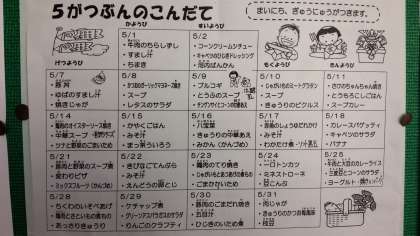 5がつぶんのこんだて
まいにち、ぎゅうにゅうがつきます。
かようび
すいようび
げつようび
もくようび
きんようび
5/1
・牛肉のちらしずし
・すまし汁
・ちまき
5/2
・コーンクリームシチュー
・キャベツのひじきドレッシング
5/7
・豚丼
・ゆばのすまし汁
・焼きじゃが
5/8
・スープ
・レタスのサラダ
5/9
・プルコギ
・とうふのスープ
5/10
・じゃがいものミートグラタン
・スープ
・きゅうりのピクルス
5/11
・とうもろこしごはん
・スープカレー
5/14
・中華スープ
・ツナと野菜のごまいため
5/15
・かやくごはん
・みそ汁
・まっ茶ういろう
5/16
・八宝菜
・きゅうりの中華あえ
・みかん（かんづめ）
5/17
・みそ汁
・わかたけ煮
5/18
・カレースパゲッティ
・キャベツのサラダ
・バナナ
5/21
・豚肉と野菜のスープ煮
・変わりピザ
・ミックスフルーツ（かんづめ）
5/22
・きびなごてんぷら
・みそ汁
・えんどうの卵とじ
5/23
・鶏肉のてり焼き
・ごまかかいため
5/24
・一口トンカツ
・ミネストローネ
・豆こんぶ
5/25
・牛肉と大豆のカレーライス
・三度豆とコーンのサラダ
・ヨーグルト
5/28
・ちくわのいそべあげ
・鶏肉とさといもの煮もの
・あっさりきゅうり
5/29
・ケチャップ煮
・グリーンアスパラガスのサラダ
・りんごのクラフティ
5/30
・豚肉のごまだれ焼き
・五目汁
・ひじきのいため煮
5/31
・肉じゃが
・きゅうりのかつお梅風味
・枝豆